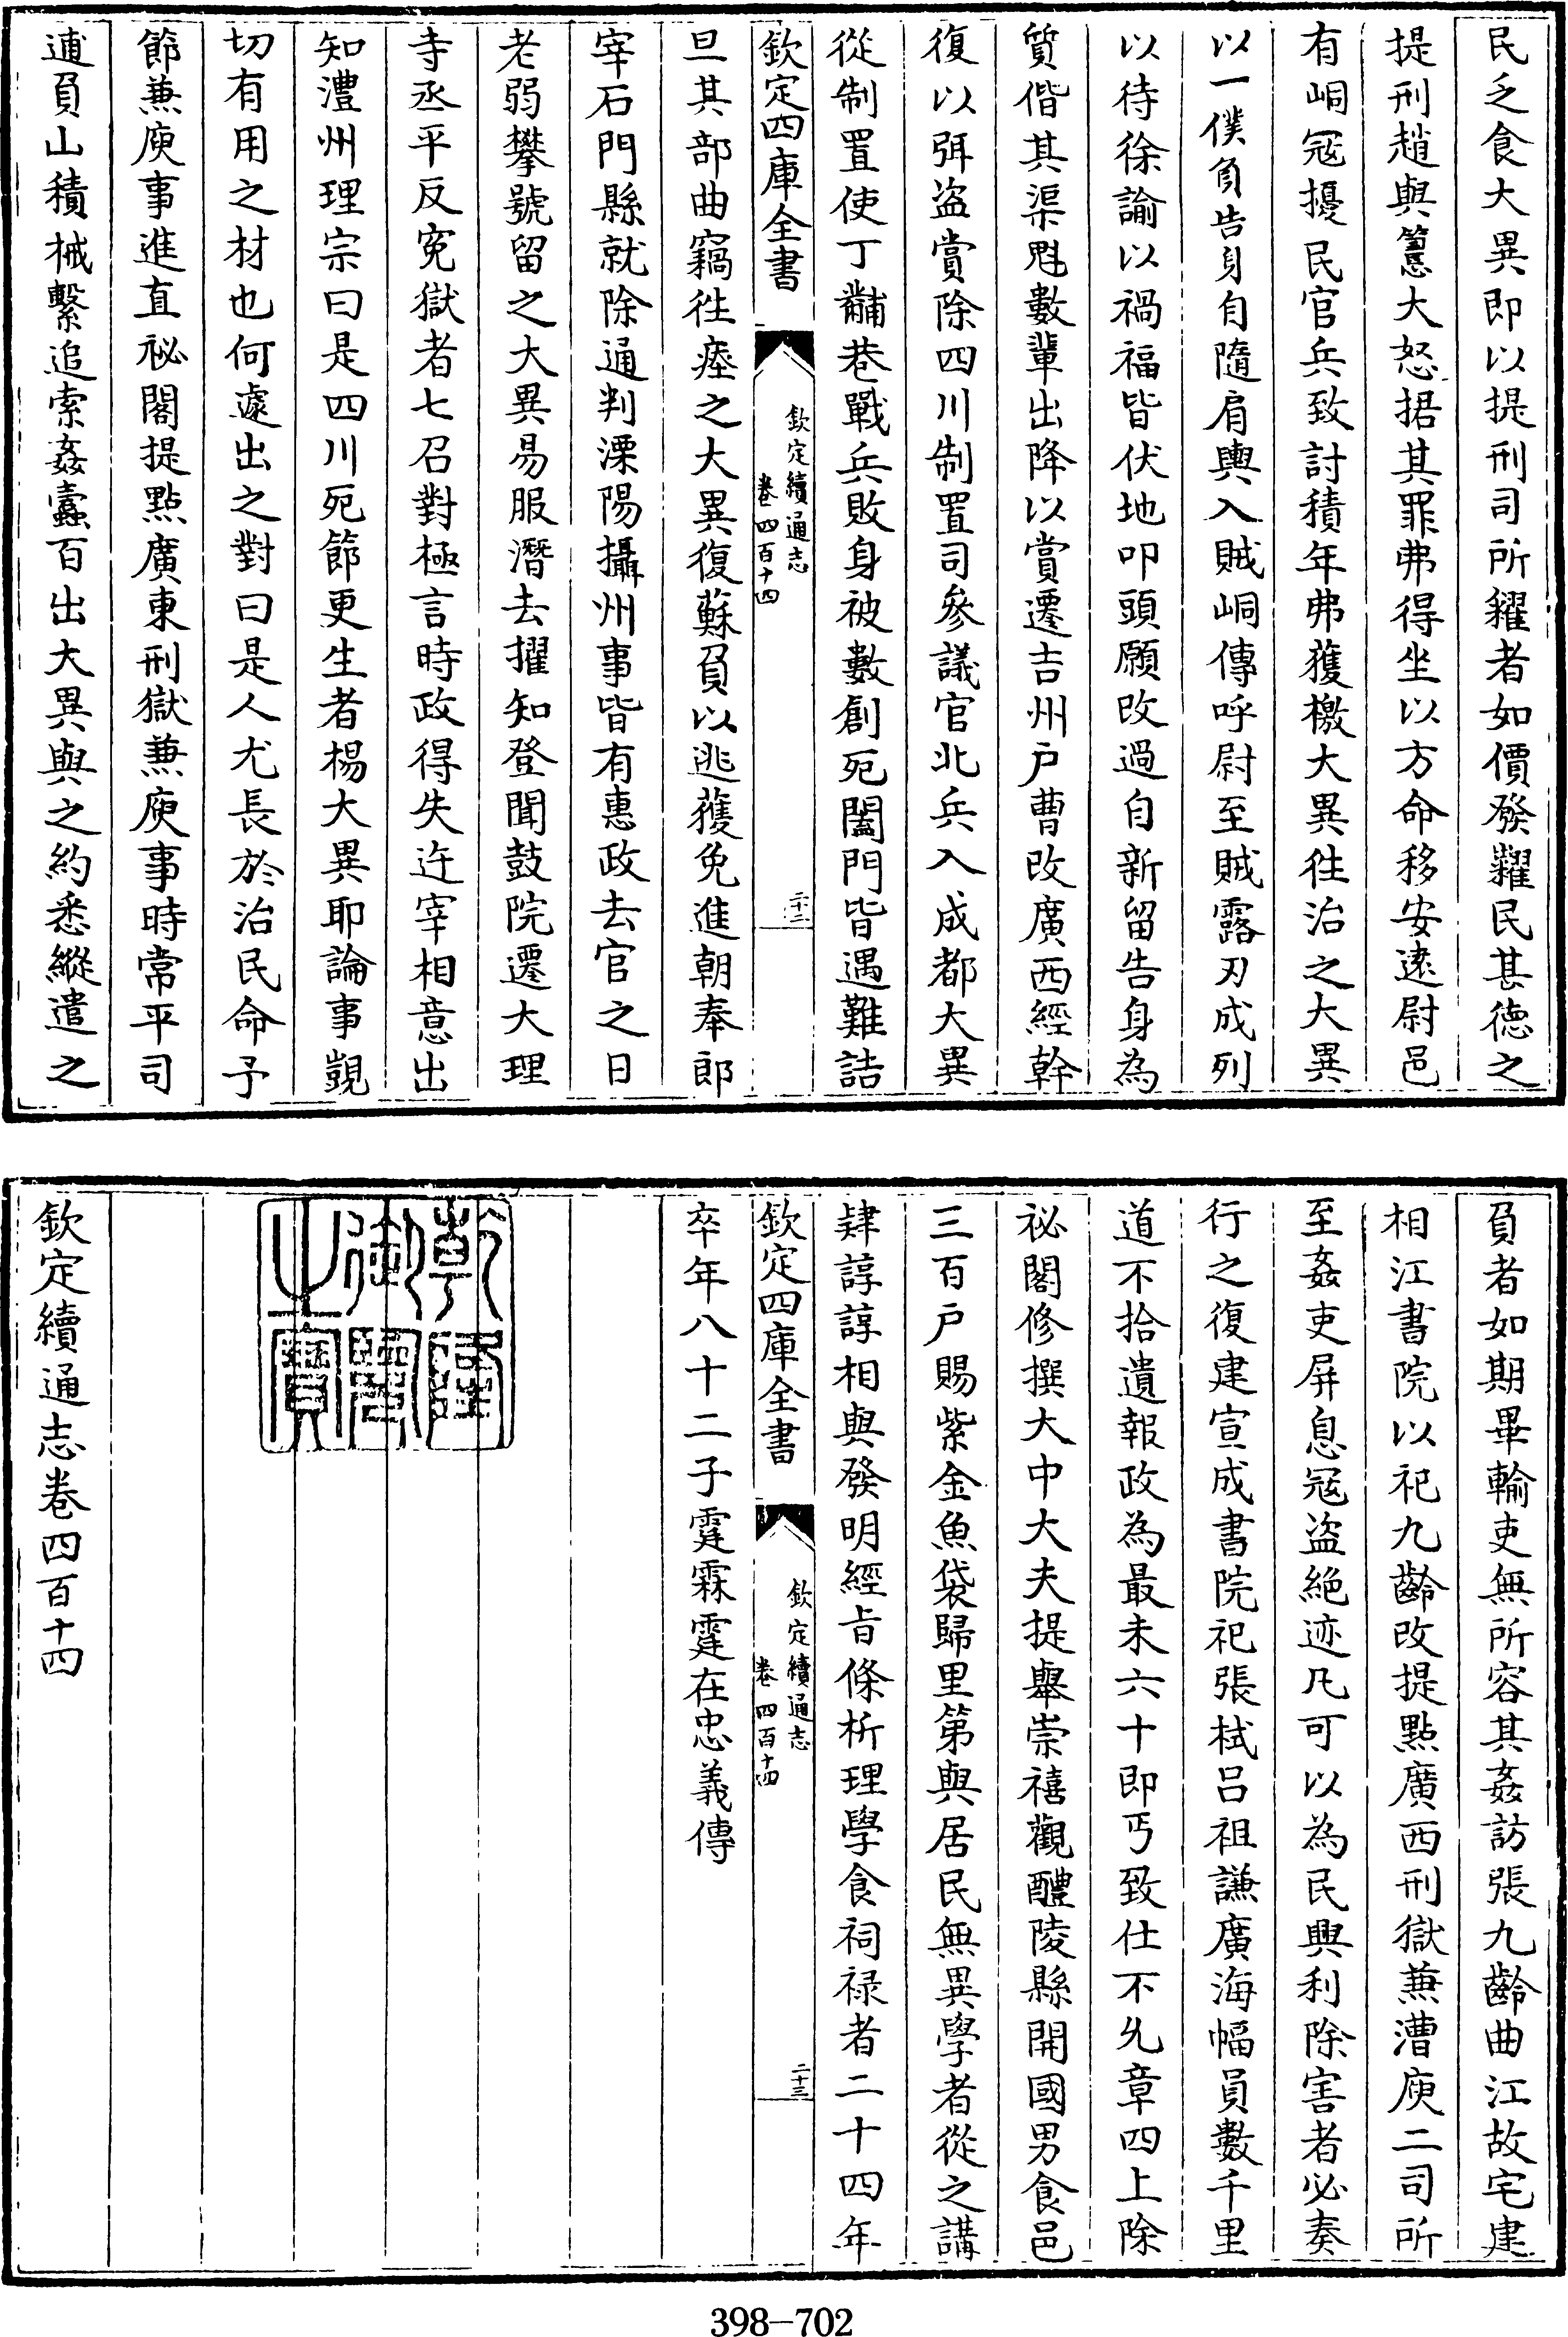 民乏食大異即以提刑司所糴者如價發糶民甚德之
提刑趙與𥲅大怒据其罪弗得坐以方命移安逺尉邑
有峒冦擾民官兵致討積年弗獲檄大異徃治之大異
以一僕負告身自隨肩輿入賊峒傳呼尉至賊露刃成列
以待徐諭以禍福皆伏地叩頭願改過自新留告身為
質偕其渠魁數輩出降以賞遷吉州户曹改廣西經幹
復以弭盗賞除四川制置司參議官北兵入成都大異
從制置使丁黼巷戰兵敗身被數創死闔門皆遇難詰
欽定四庫全書
欽定續通志
卷四百十四
二十二
旦其部曲竊徃瘞之大異復蘇負以逃獲免進朝奉郎
宰石門縣就除通判溧陽攝州事皆有惠政去官之日
老弱攀號留之大異易服潛去擢知登聞鼓院遷大理
寺丞平反冤獄者七召對極言時政得失迕宰相意出
知澧州理宗曰是四川死節更生者楊大異耶論事覬
切有用之材也何遽出之對曰是人尤長於治民命予
節兼庾事進直祕閣提點廣東刑獄兼庾事時常平司
逋負山積械繫追索姦蠹百出大異與之約悉縱遣之
負者如期畢輸吏無所容其姦訪張九齡曲江故宅建
相江書院以祀九齡改提點廣西刑獄兼漕庾二司所
至姦吏屏息冦盗絶迹凡可以為民興利除害者必奏
行之復建宣成書院祀張栻吕祖謙廣海幅員數千里
道不拾遺報政為最未六十即丐致仕不允章四上除
祕閣修撰大中大夫提舉崇禧觀醴陵縣開國男食邑
三百户賜紫金魚袋歸里第與居民無異學者從之講
肄諄諄相與發明經旨條析理學食祠禄者二十四年
欽定四庫全書
欽定續通志
卷四百十四
二十三
卒年八十二子霆霖霆在忠義傳
乾隆御覽之寶
欽定續通志卷四百十四
398-702